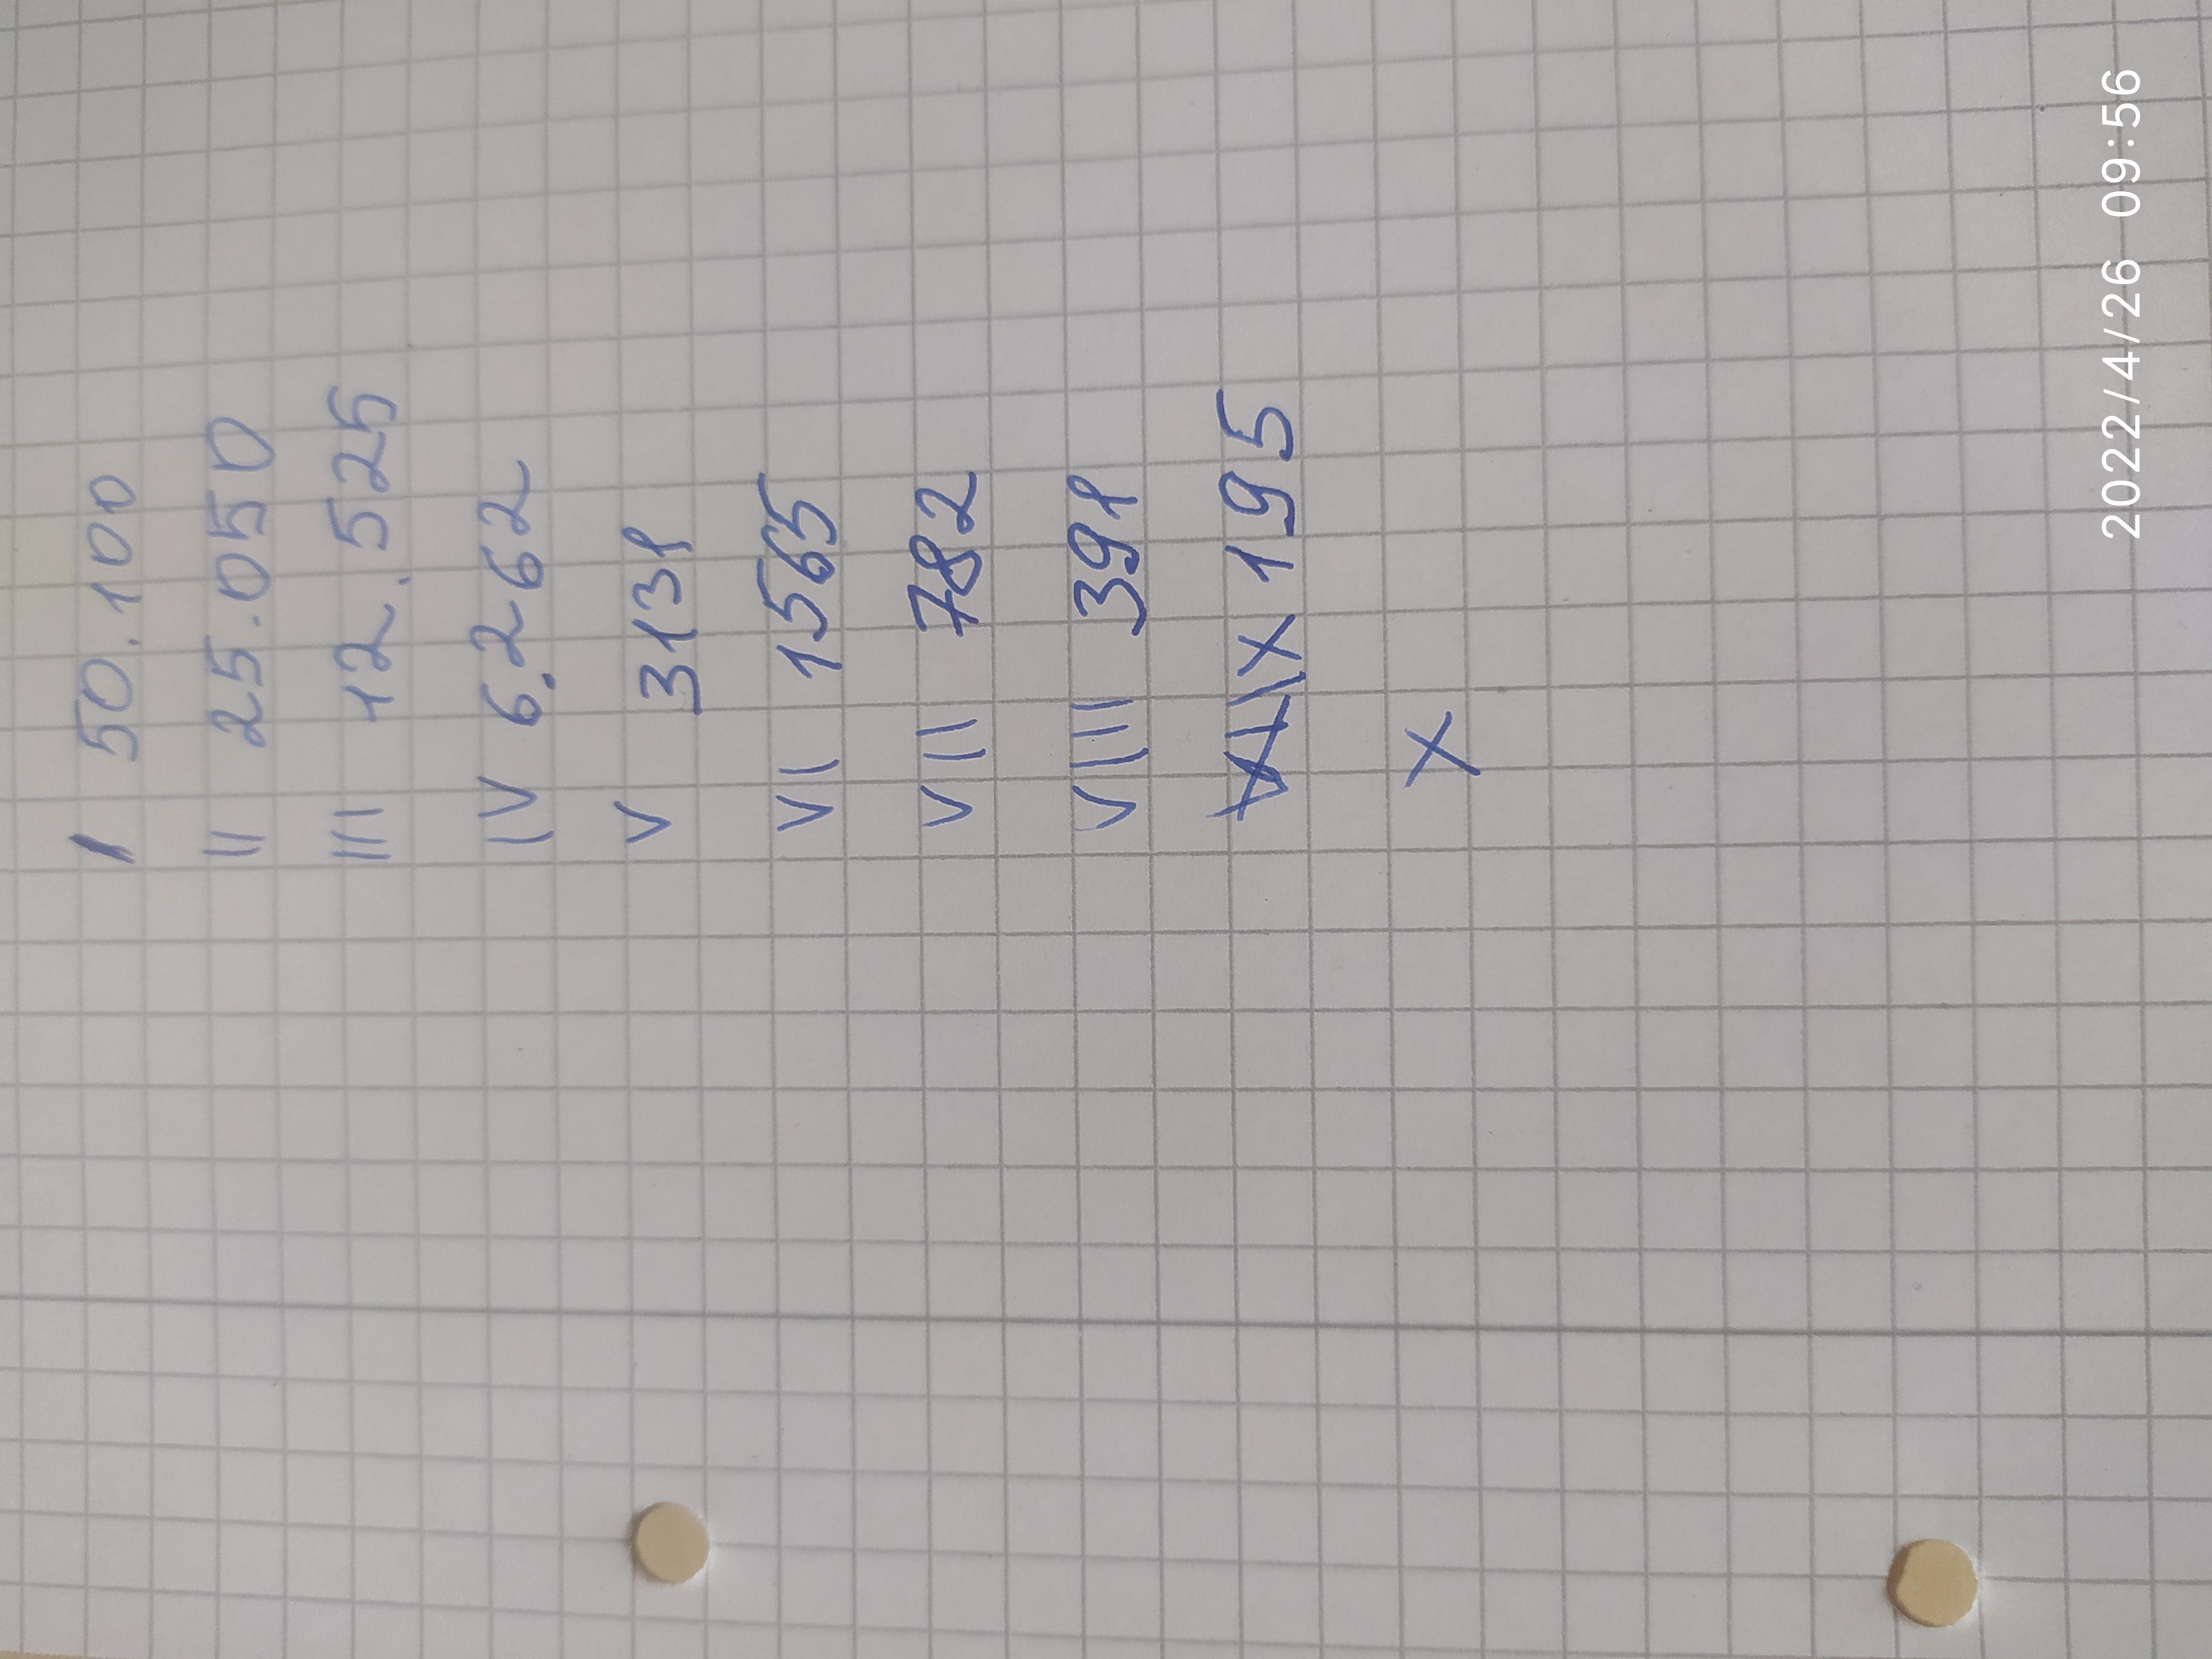 I 50.100
II 25.050
III 12.525
IV 6.262
V 3131
VI 1565
VII 782
VIII 391
IX 195
X
2022/4/26 09:56